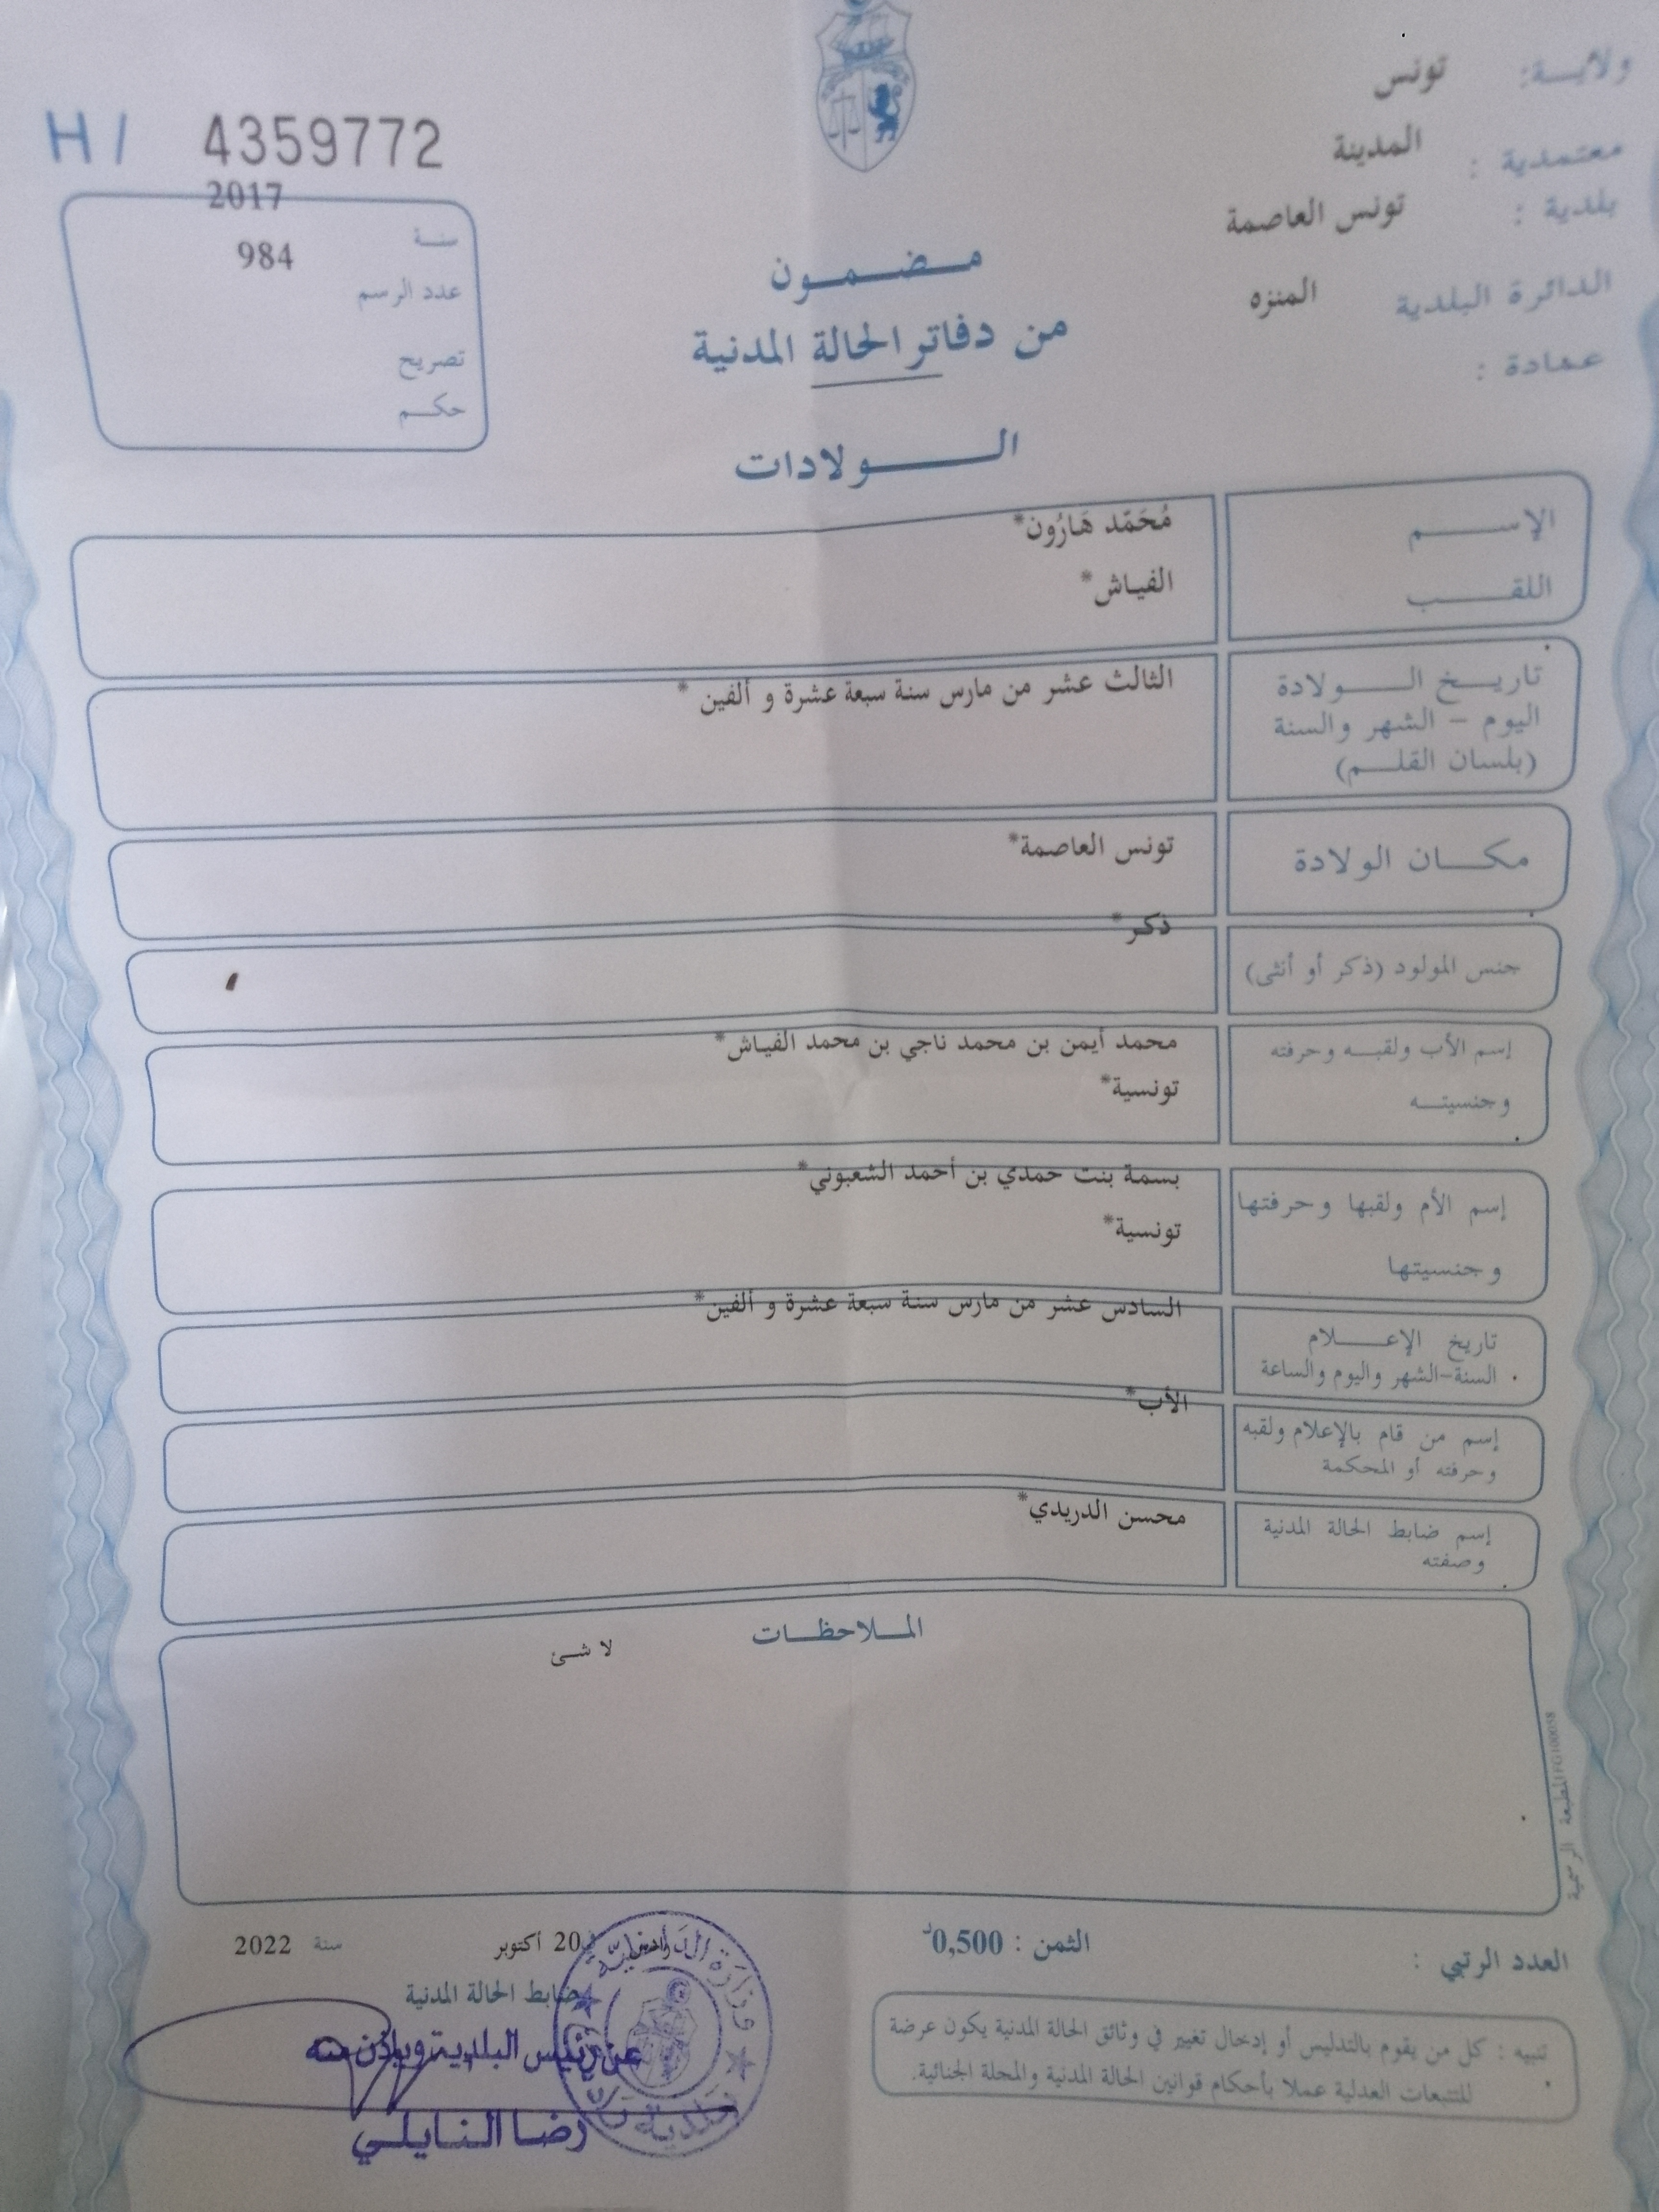 ولاية: تونس
معتمدية : المدينة
بلدية : تونس العاصمة
الدائرة البلدية المنزه
عمادة :
H I 4359772
سنة 2017
عدد الرسم 984
تصريح
حكم
مضمون
من دفاتر الحالة المدنية
الولادات
الإسم مُحَمّد هَارُون*
اللقب الفياش*
تاريخ الولادة الثالث عشر من مارس سنة سبعة عشرة و ألفين *
اليوم - الشهر والسنة
(بلسان القلم)
مكان الولادة تونس العاصمة*
جنس المولود (ذكر أو أنثى) ذكر*
إسم الأب ولقبه وحرفته محمد أيمن بن محمد ناجي بن محمد الفياش*
وجنسيته تونسية*
إسم الأم ولقبها وحرفتها بسمة بنت حمدي بن أحمد الشعبوني*
وجنسيتها تونسية*
تاريخ الإعلام السادس عشر من مارس سنة سبعة عشرة و ألفين*
السنة-الشهر واليوم والساعة
إسم من قام بالإعلام ولقبه الأب*
وحرفته أو المحكمة
إسم ضابط الحالة المدنية محسن الدريدي*
وصفته
الملاحظات
لا شئ
المطبعة الرسمية
العدد الرتبي :
الثمن : 0,500د
20 أكتوبر سنة 2022
ضابط الحالة المدنية
عن رئيس البلدية وبإذن منه
رضا النايلي
تنبيه : كل من يقوم بالتدليس أو إدخال تغيير في وثائق الحالة المدنية يكون عرضة
للتتبعات العدلية عملا بأحكام قوانين الحالة المدنية والمجلة الجنائية.